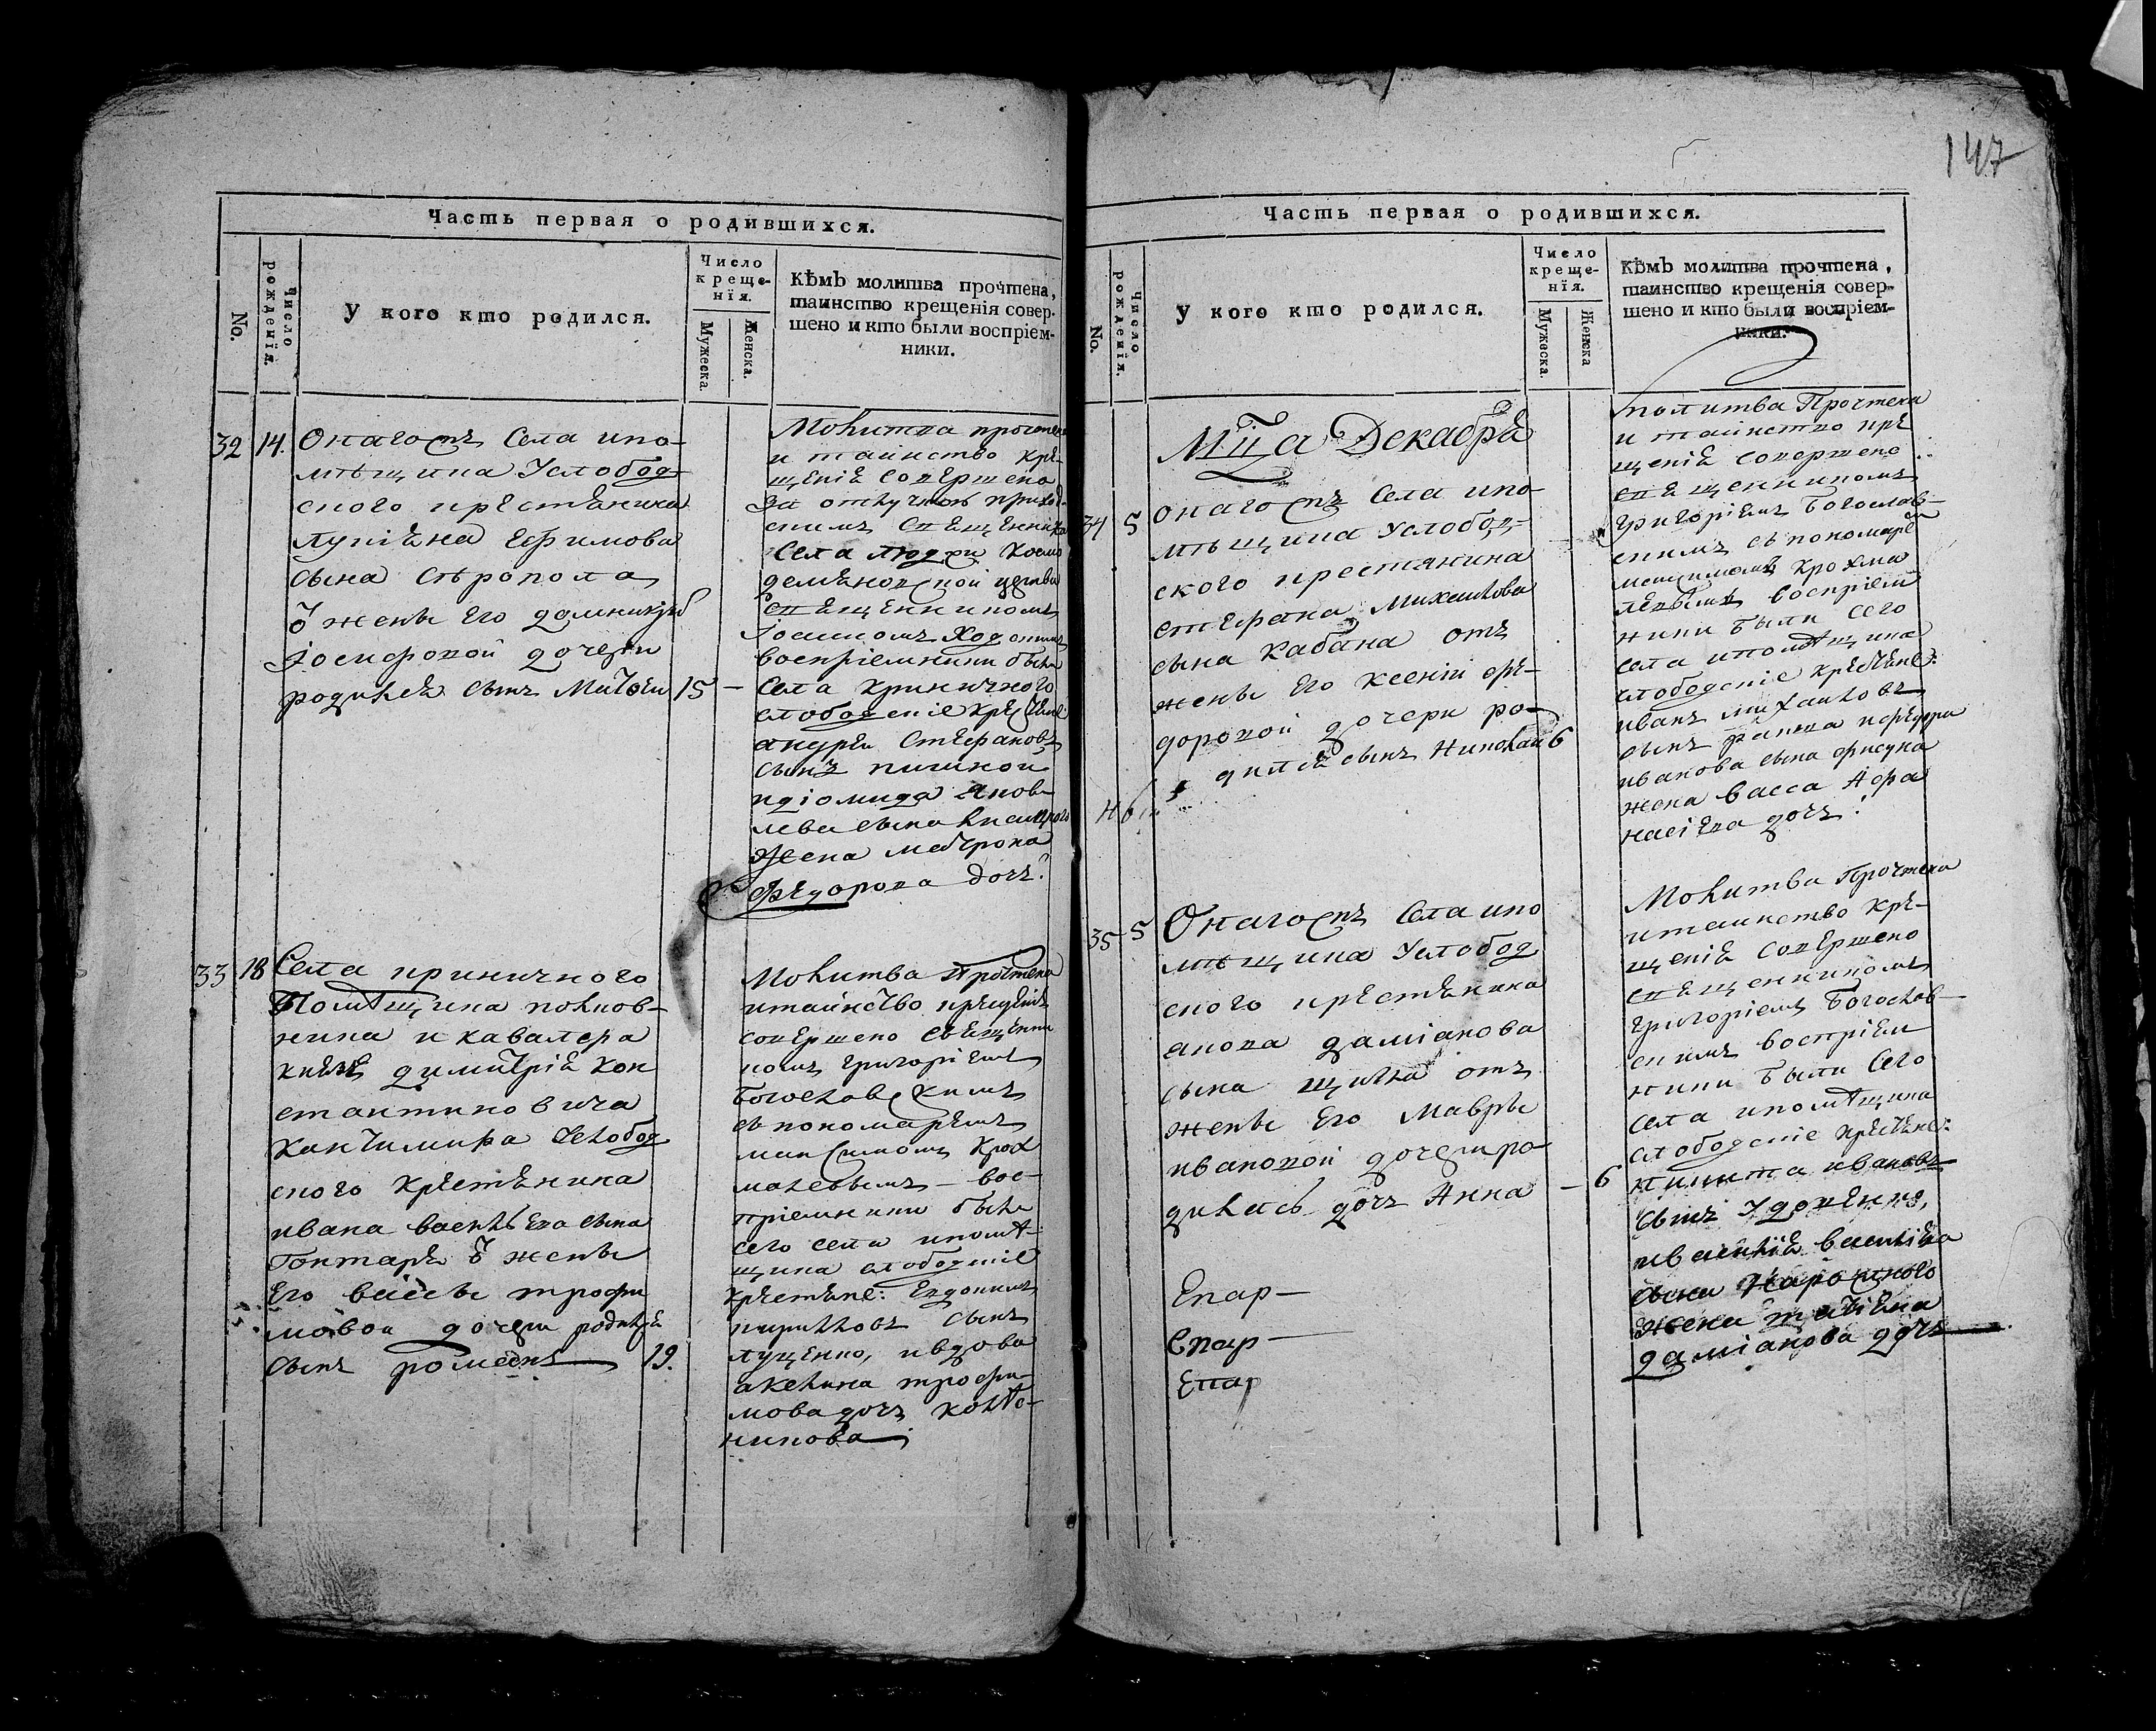 147
Часть первая о родившихся.
No.
Число рожденїя.
У кого кто родился.
Число
креще-
нїя.
Мужеска.
Женска.
Кѣмъ молитва прочтена,
таинство крещенїя совер-
шено и кто были воспрїем-
ники.
32
14.
Онагожъ Села ипо-
мѣщика Услобод-
ского крестьянина
Ефимова
сына
Ѿ жены Его
Іосифовой дочери
родился сынъ
15 -
Молитва прочтен
и таинство кре-
щенія совершено
За отлучкою приход-
скимъ священника
Села
церкви
священникомъ
Іоанномъ
воспріемники были
Села криничного
слободскіе
андрей Стефановъ
сынъ
идіомида Яков-
лева сына
Жена
Федорова дочь.
33
18
Села криничного
Помѣщика полков-
ника и кавалера
князя димитрія Кон
стантиновича
Кантимира слобод
ского крестьянина
ивана васильева сына
Гонтаря Ѿ жены
Его вассы трофи
мовой дочери родился
сынъ романъ
19.
Молитва Прочтена
и таинство крещенія
совершено священни
комъ григоріемъ
Богословскимъ
съ пономаремъ
максимомъ Крох
малевымъ - вос-
пріемники были
сего села и помѣ-
щика слободскіе
крестьяне: Евдокимъ
кириловъ сынъ
луценко, и вдова
акелина трофи-
мова дочь колѣс-
никова
Часть первая о родившихся.
No.
Число рожденїя.
У кого кто родился.
Число
креще-
нїя.
Мужеска.
Женска
Кѣмъ молитва прочтена,
таинство крещенїя совер-
шено и кто были воспрїем-
ники.
Мца Декабря
34
5
онагожъ Села ипо-
мѣщика услобод-
ского крестянина
стефана Михайлова
сына Кабана отъ
жены Его Ксеніи фе-
доровой дочери ро-
дился сынъ Николай
6
молитва Прочтена
и таинство кре
щенія совершено
священникомъ
григоріемъ Богослов-
скимъ съ пономаре
максимомъ крохма
левымъ воспріем
ники были сего
села и помѣщика
слободскіе крестьяне:
иванъ михайловъ
сынъ
иванова сына
жена васса Афа
насіева дочь.
35
5
Онагожъ Села ипо
мѣщика Услобод
ского крестьянина
якова даміанова
сына отъ
жены Его Мавры
ивановой дочери ро-
дилась дочь Анна
- 6
Молитва Прочтена
и таинство кре-
щенія совершено
священникомъ
григоріемъ Богослов-
скимъ воспріем
ники были Сего
села и помѣщика
слободскіе крестьяне:
никита ивановъ
сынъ Удовенко,
сына
Жена татіана
даміанова дочь
Епар-
Епар-
Епар